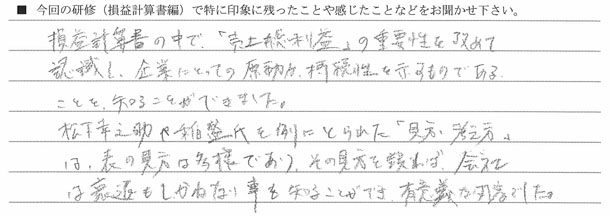 ■ 今回の研修(損益計算書編)で特に印象に残ったことや感じたことなどをお聞かせ下さい。
損益計算書の中で、「売上総利益」の重要性を改めて
認識し、企業にとっての原動力、持続性を示すものである
ことを、知ることができました。
松下幸之助や稲盛氏を例にとられた「見方・考え方」
は、表の見方は多様であり、その見方を誤れば、会社
は衰退もしかねない事を知ることができ、有意義な